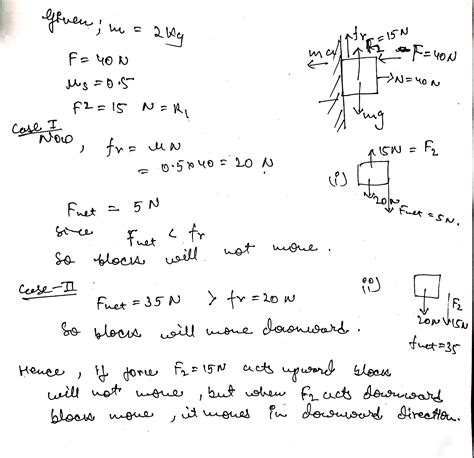 Given, m = 2kg
F = 40N
μs = 0.5
F2 = 15 N = R1
fr = 15N
F2
F = 40N
ma
N = 40N
mg
Case I
Now, fr = μN
= 0.5 × 40 = 20 N
(i)
15N = F2
20N
Fnet = 5N.
Fnet = 5N
since Fnet < fr
So block will not move.
Case-II
Fnet = 35N > fr = 20N
So block will move downward.
(ii)
F2
20N 15N
fnet = 35
Hence, if force F2 = 15N acts upward block
will not move, but when F2 acts downward
block move, it moves in downward direction.